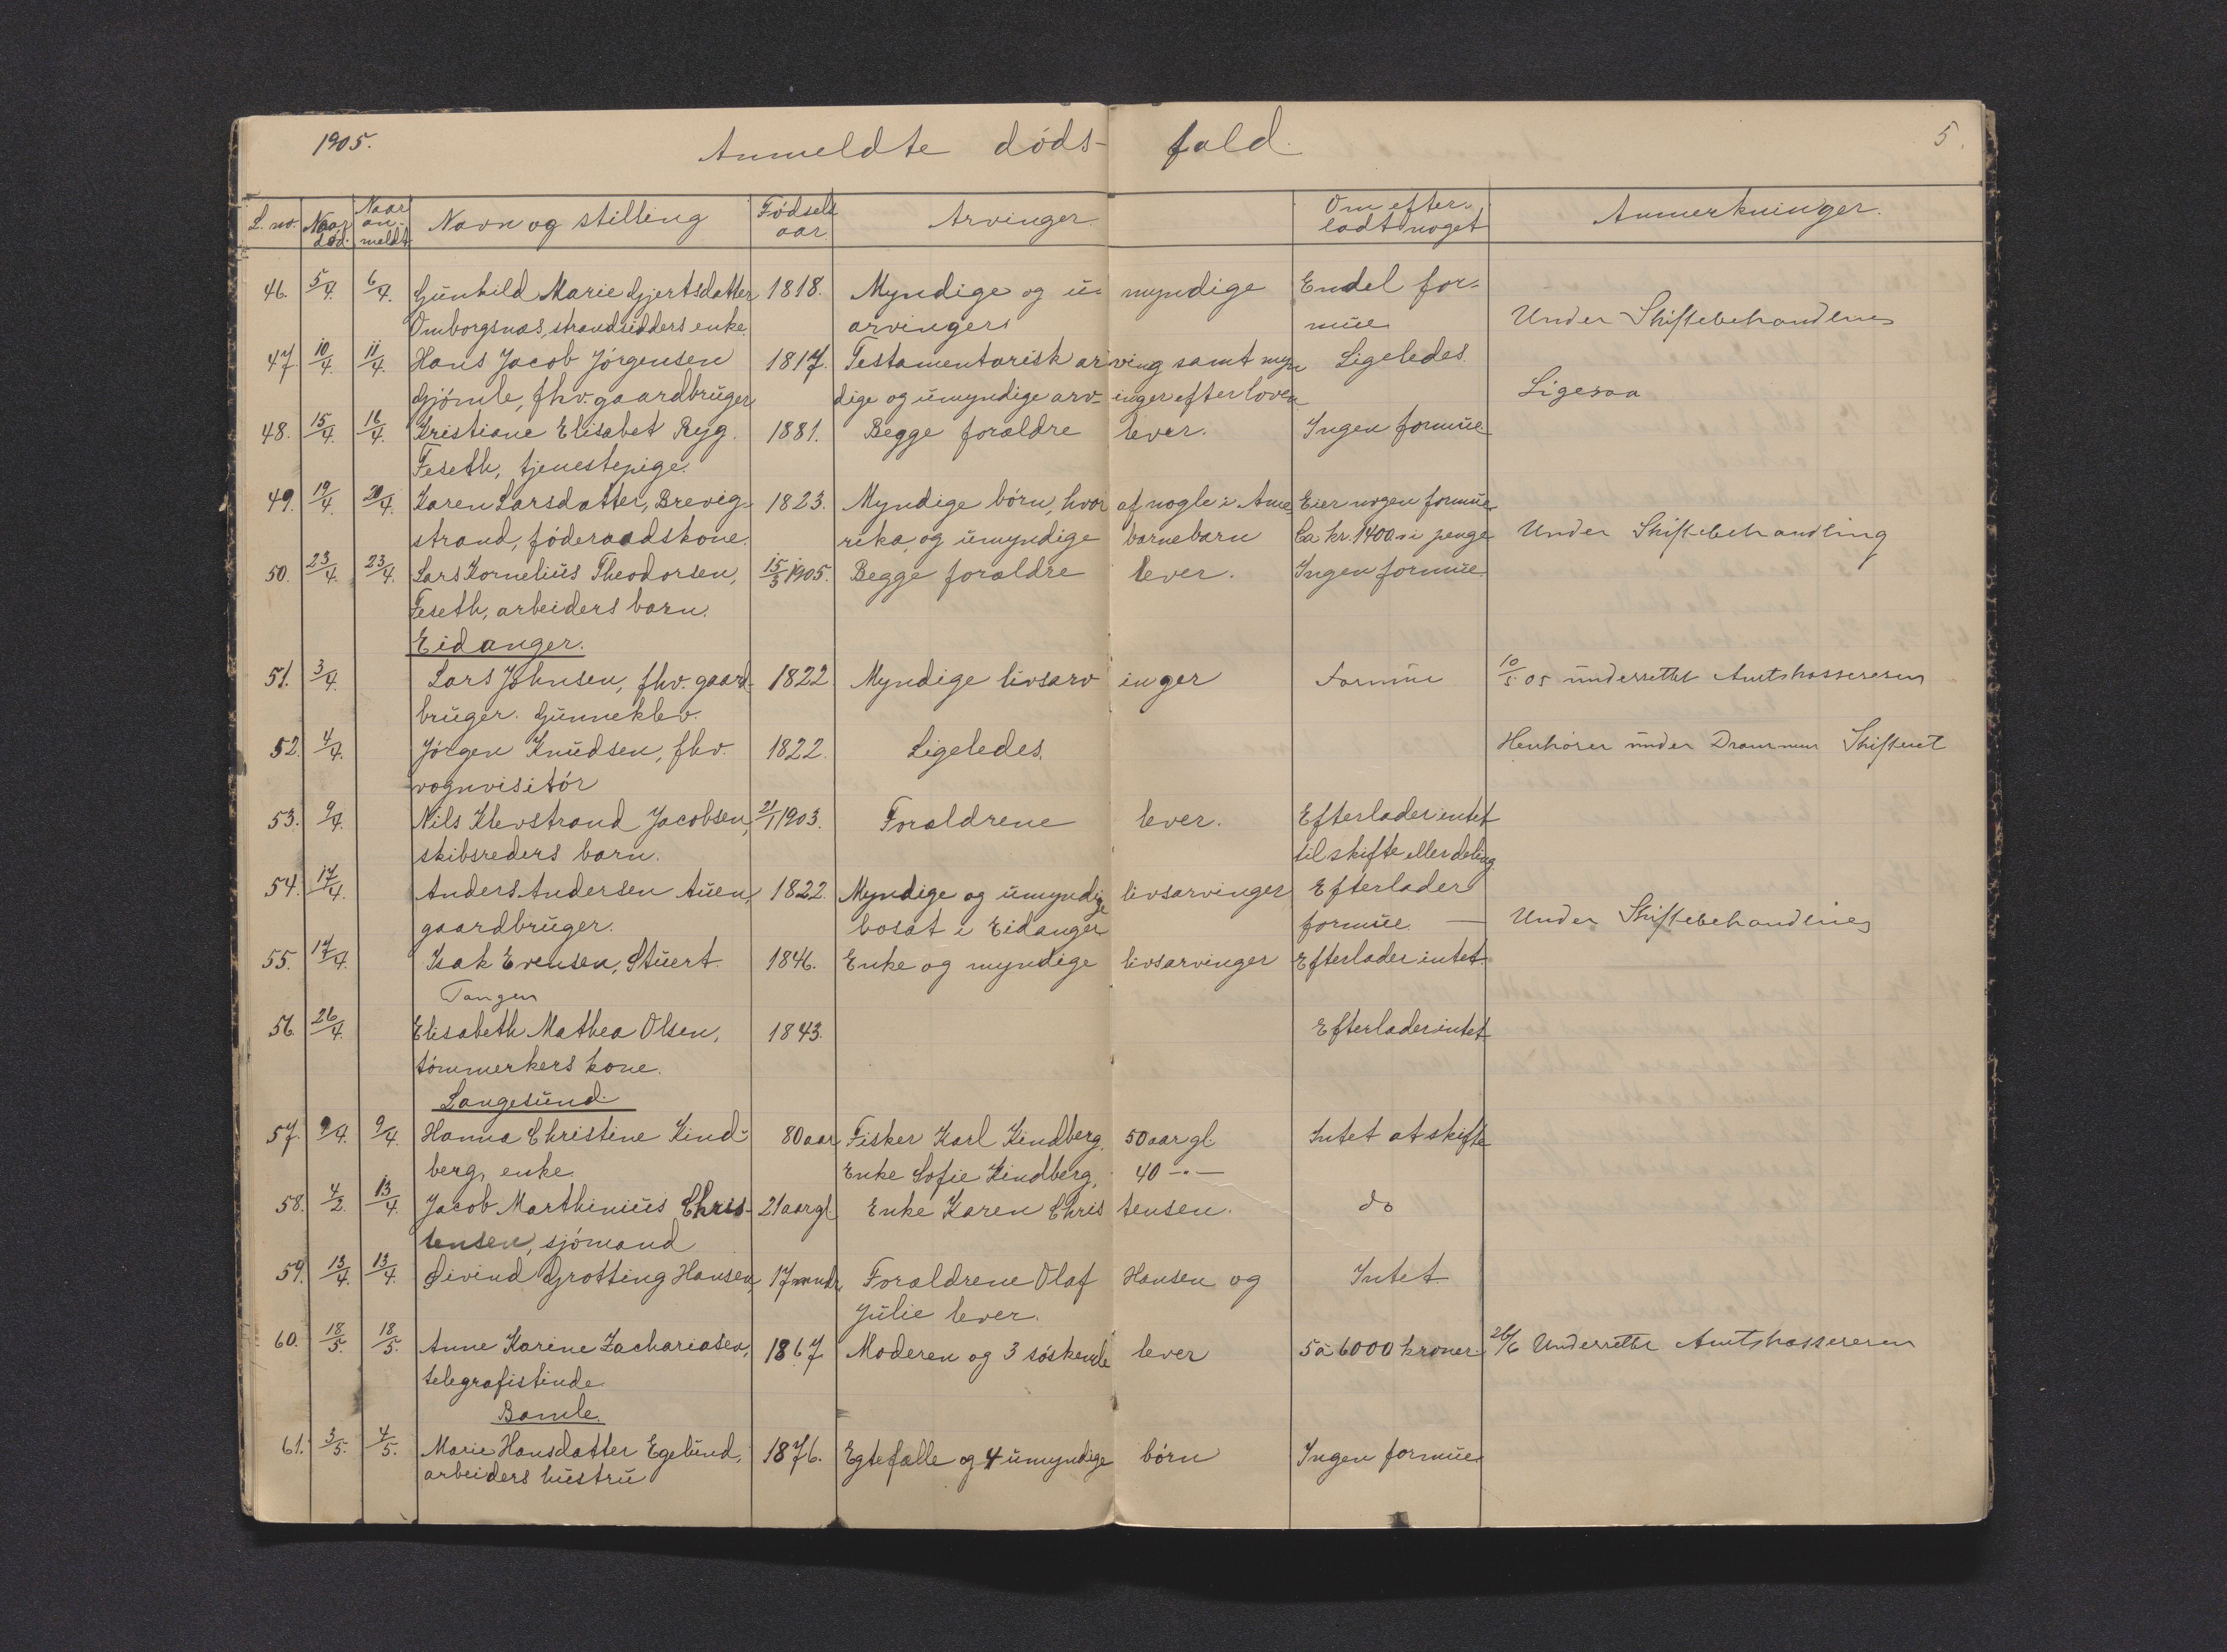 1905. Anmeldte døds- fald. 5.
L. no. Naar død. Naar an- meldt Navn og stilling Fødsels aar. Arvinger. Om efter- ladt noget Anmerkninger.
46. 5/4. 6/4. Gunhild Marie Gjertsdatter 1818. Myndige og u- myndige Endel for-
Omborgsnæs, strandsidders enke. arvinger. mue. Under Skiftebehandling
47. 10/4. 11/4. Hans Jacob Jørgensen 1817. Testamentarisk arving samt myn Ligeledes.
Gjømle, fhv. gaardbruger, dige og umyndige arv- inger efter loven Ligesaa
48. 15/4. 16/4. Kristiane Elisabet Ryg. 1881. Begge forældre lever. Ingen formue
Feseth, tjenestepige.
49. 19/4. 20/4. Karen Larsdatter, Brevig- 1823. Myndige børn, hvor af nogle i Ame Eier nogen formue
strand, føderaadskone. rika, og umyndige barnebarn Ca kr. 1400 i penge Under Skiftebehandling
50. 23/4. 23/4. Lars Kornelius Theodorsen, 15/3 1905. Begge forældre lever. Ingen formue.
Feseth, arbeiders barn.
Eidanger.
51. 3/4. Lars Johnsen, fhv. gaard- 1822 Myndige livsarv inger Formue 10/5 05 underrettet Amtskassereren
bruger. Gunneklev.
52. 4/4. Jörgen Knudsen, fhv. 1822. Ligeledes. Henhører under Drammen Skifteret
vognvisitör
53. 9/4. Nils Klevstrand Jacobsen, 21/1 1903. Forældrene lever. Efterlader intet
skibsreders barn. til skifte eller deling
54. 17/4. Anders Andersen Auen, 1822. Myndige og umyndige livsarvinger Efterlader
gaardbruger. bosat i Eidanger formue. — Under Skiftebehandling
55. 17/4. Isak Evensen, Stuert 1846. Enke og myndige livsarvinger Efterlader intet.
Tangen
56. 26/4. Elisabeth Mathea Olsen, 1843. Efterlader intet
tømmerkers kone.
Langesund.
57. 9/4. 9/4. Hanna Christine Kind- 80 aar Fisker Karl Kindberg. 50 aar gl. Intet at skifte
berg, enke. Enke Sofie Kindberg, 40 -"-
58. 4/2. 13/4. Jacob Marthinius Chris- 21 aar gl Enke Karen Chris tensen. do
tensen, sjömand
59. 13/4. 13/4. Øivind Grotting Hansen, 17 mndr. Forældrene Olaf Hansen og Intet.
Julie lever.
60. 18/5. 18/5. Anne Karine Zachariasen, 1867. Moderen og 3 söskende lever 5 à 6000 kroner. 26/6 Underrettet Amtskassereren
telegrafistinde.
Bamle.
61. 3/5. 4/5. Marie Hansdatter Egelund, 1876. Egtefælle og 4 umyndige børn Ingen formue
arbeiders hustru